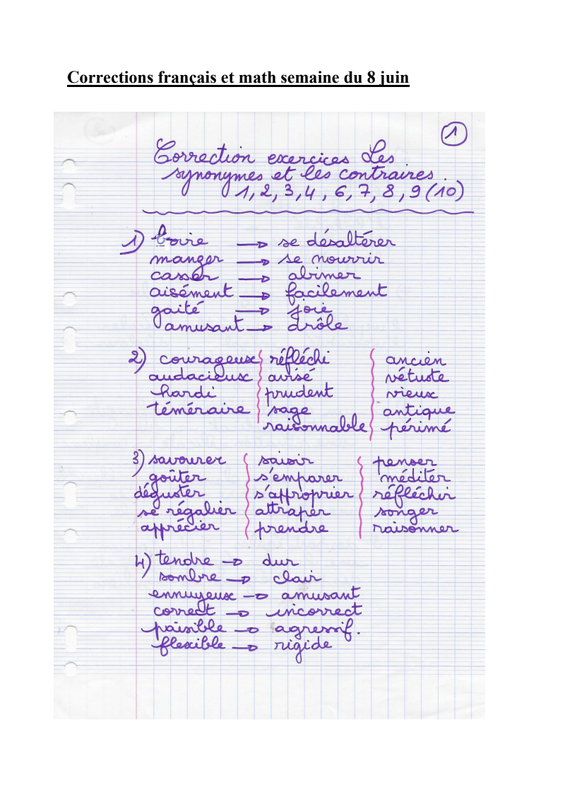 Corrections français et math semaine du 8 juin
1
Correction exercices Les
synonymes et les contraires.
1, 2, 3, 4, 6, 7, 8, 9 (10)
1) boire → se désaltérer
manger → se nourrir
casser → abimer
aisément → facilement
gaité → joie
amusant → drôle
2) courageux réfléchi ancien
audacieux avisé vétuste
hardi prudent vieux
téméraire sage antique
raisonnable périmé
3) savourer saisir penser
goûter s'emparer méditer
déguster s'approprier réfléchir
se régalier attraper songer
apprécier prendre raisonner
4) tendre → dur
sombre → clair
ennuyeux → amusant
correct → incorrect
paisible → agressif.
flexible → rigide